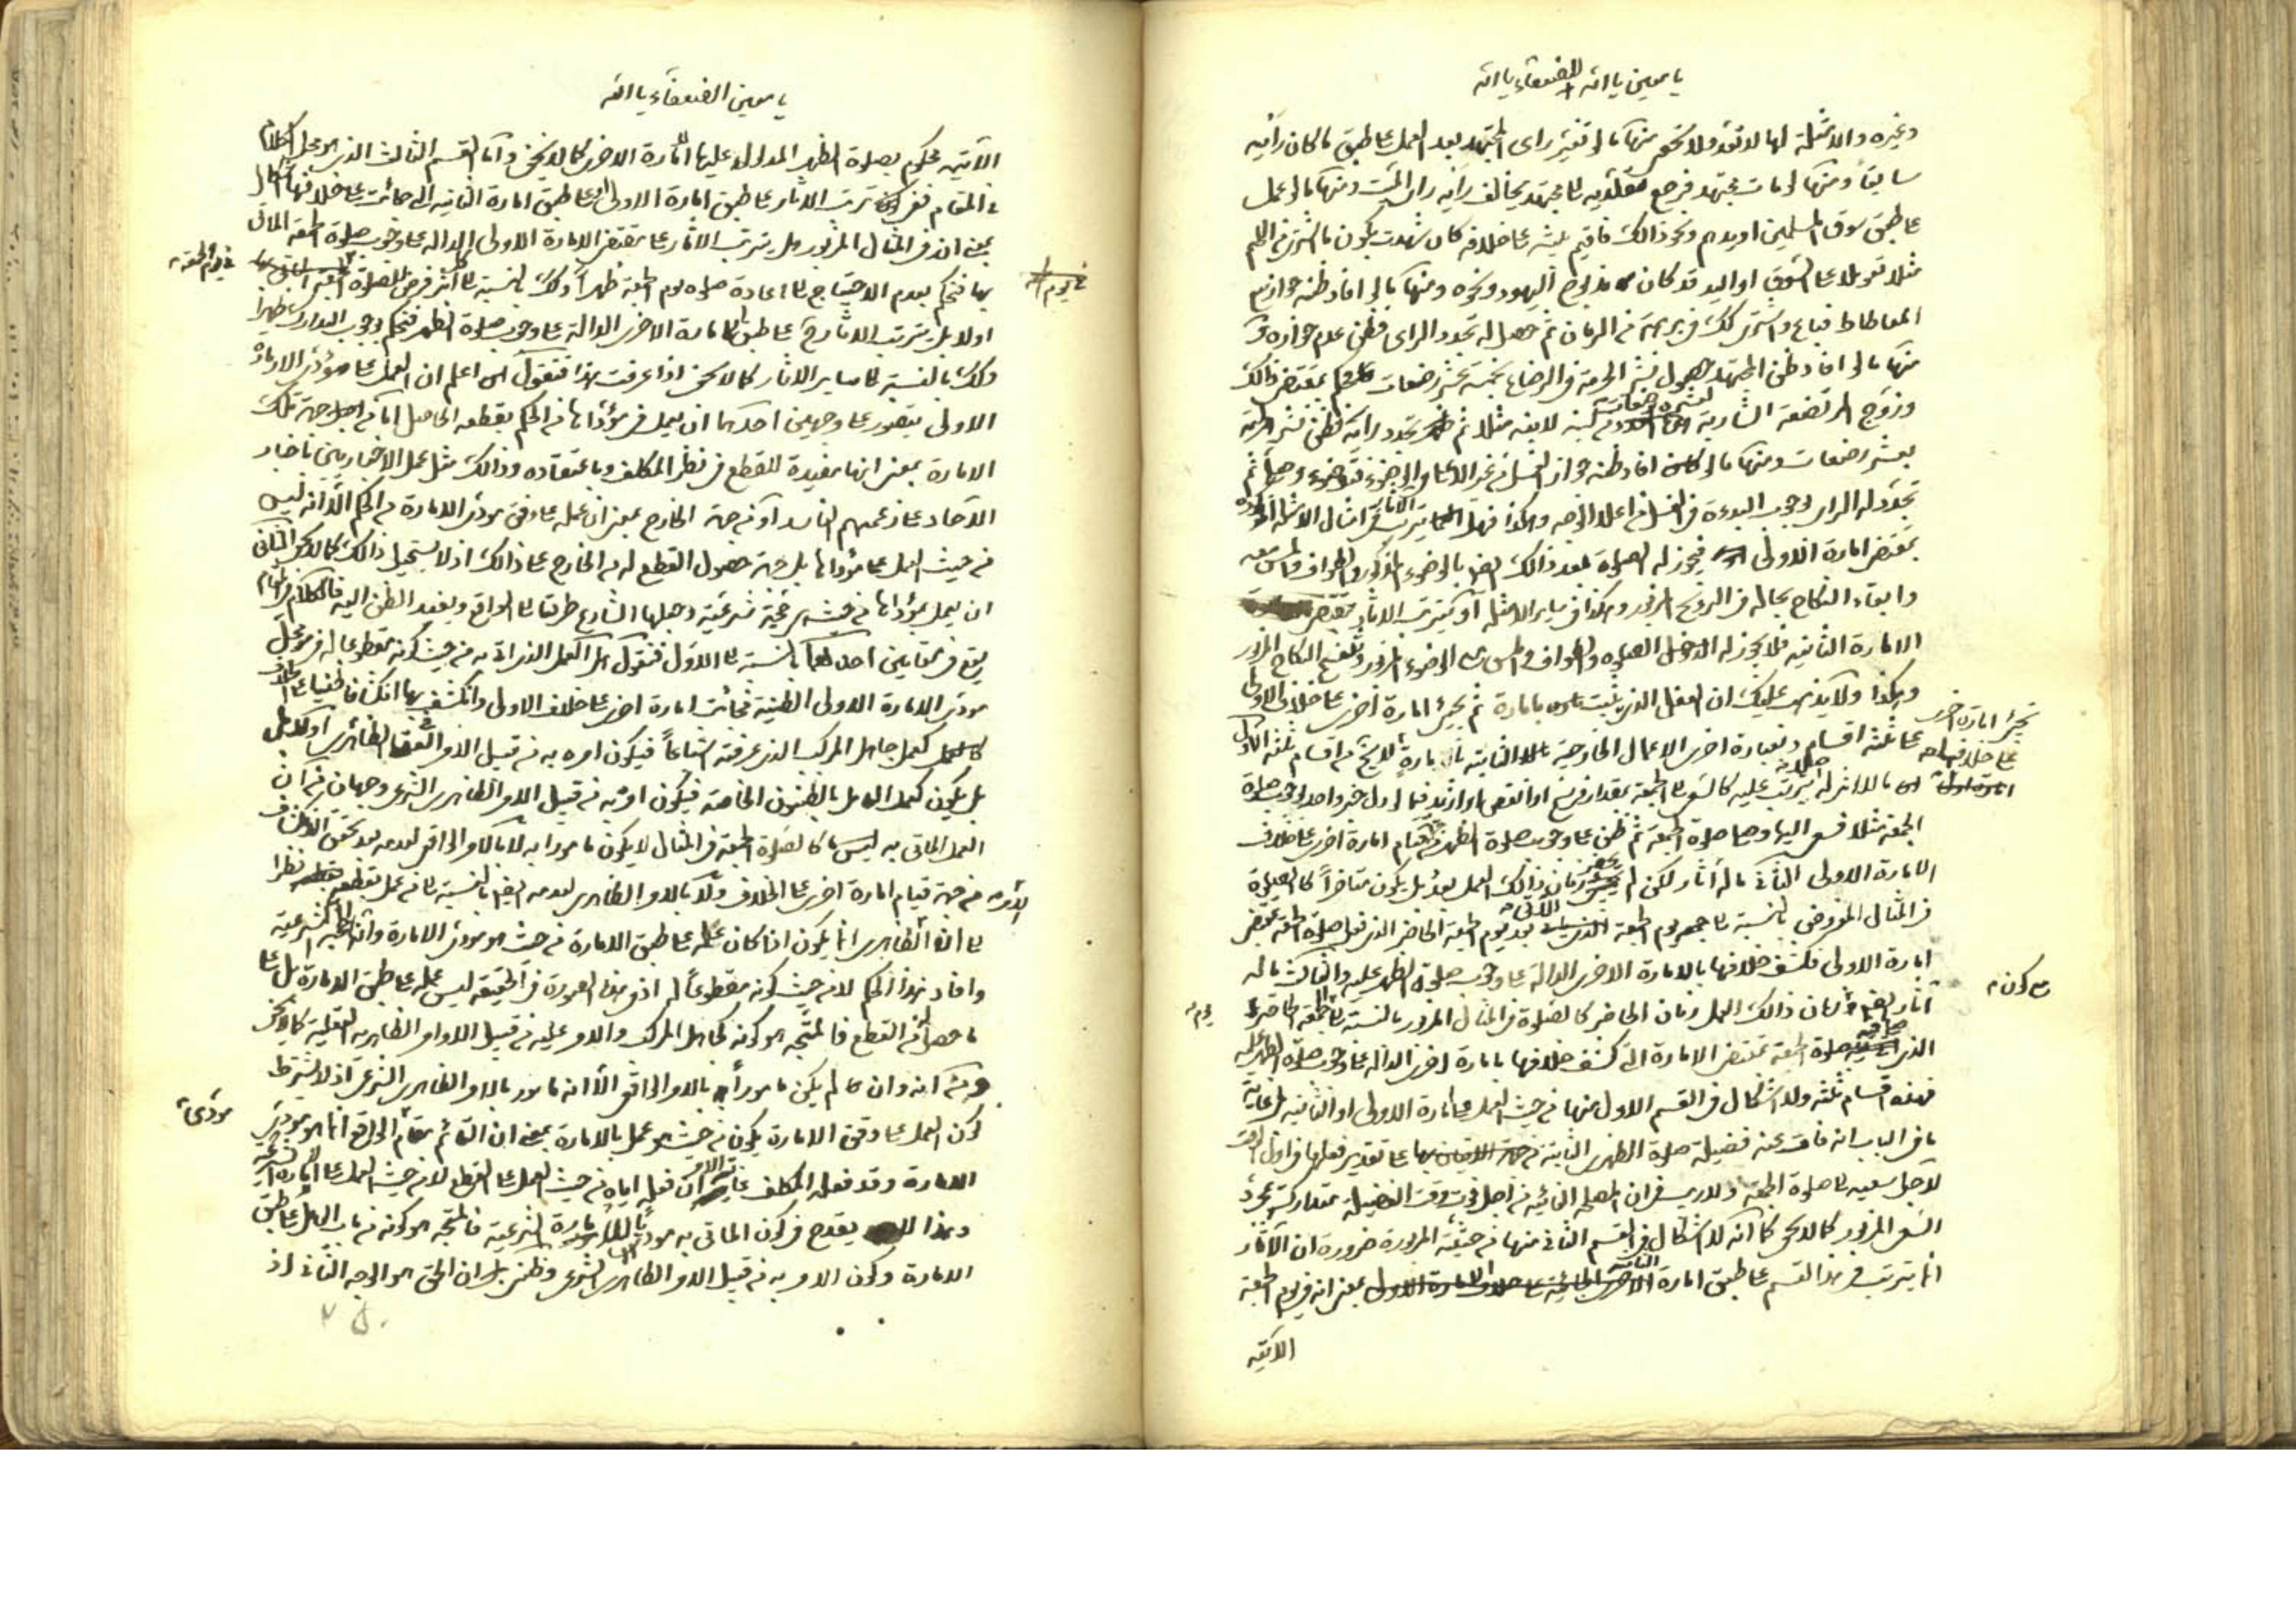 يا معين يا الله الضعفاء يا الله
وغيره والامثلة لها لا تعد ولا تحصى منها ما لو تغير راى المجتهد بعد العمل على طبق ما كان رأيه
سابقا ومنها لو مات مجتهد فرجع مقلديه الى مجتهد يخالف رأيه راى الميت ومنها ما لو عمل
على طبق سوق المسلمين او يدهم ونحو ذالك فاقيم بينة على خلافه كان شهدت بكون ما اشترى من اللحم
مثلا تعويلا على السوق او اليد قد كان مذبوح اليهود ونحوه ومنها ما لو افاد ظنه جواز بيع
المعاطاط فباع واستمر كك فى برهة من الزمان ثم حصل له تجدد الراى فظن عدم جوازه
منها ما لو افاد ظن المجتهد حصول نشر الحرمة فى الرضاع بخمسة عشر رضعات فحكم بمقتضى ذالك
وزوج المرتضعة لابنه مثلا ثم تجدد رأيه فظن نشر الحرمة
بعشر رضعات ومنها ما لو افاد ظنه جواز الغسل من غير الاعلى فى الوضوء فتوضوء وصلى ثم
تجدد له الراى بوجوب البدءة فى الغسل من اعلا الوجه وهكذا فهل يترتب الآثار فى امثال الامثلة المذكورة
بمقتضى امارة الاولى فيجوز له الصلوة بعد ذالك ايضا بالوضوء المذكور والطواف والمس معه
وابقاء النكاح بحاله فى التزويج المزبور وهكذا فى ساير الامثلة او يترتب الآثار بمقتضى
الامارة الثانية فلا يجوز له الدخول الصلوة والطواف والمس مع الوضوء المزبور وينفسخ النكاح المزبور
وهكذا ولا يذهب عليك ان الفعل الذى يثبت بامارة ثم يجيئ امارة اخرى على خلاف الاولى
على ثلثة اقسام وبعبارة اخرى الاعمال الخارجية الثابتة بامارة من اقسام ثلثة الاول
ما لا اثر له يترتب عليه كالسعى الى الجمعة بمقدار فرسخ او انقص او ازيد فيما لو دل خبر واحد بوجوب صلوة
الجمعة مثلا فسعى اليها وصلى صلوة الجمعة ثم ظن على وجوب صلوة الظهر من قيام امارة اخرى على خلاف
الامارة الاولى الثانى ما له آثار لكن لم يحضر زمان ذالك العمل بعد بل يكون متاخرا كالصلوة
فى المثال المفروض بالنسبة الى يوم الجمعة الآتى بعد يوم الجمعة الحاضر الذى فعل صلوة الجمعة بمقتضى
امارة الاولى فكشف خلافها بالامارة الاخرى الدالة على وجوب صلوة الظهر عليه والثالث ما له
آثار ايضا زمان ذالك العمل زمان الحاضر كالصلوة فى المثال المزبور بالنسبة الى الجمعة الحاضرة
الذى صلى فيه صلوة الجمعة بمقتضى الامارة التى كشف خلافها بامارة اخرى الدالة على وجوب صلوة الظهر عليه
فهذه اقسام ثلثة ولا اشكال فى القسم الاول منها من حيث العمل على امارة الاولى او الثانية غاية
ما فى الباب انه فات عنه فضيلة صلوة الظهر الثابتة على تقدير فعلها فى اول الوقت
لاجل سعيه الى صلوة الجمعة ولا ريب فى ان المصلحة الفائتة من اجل فوت وقت الفضيلة متداركة بمجرد
السعى المزبور كما لا يخفى كما انه لا اشكال فى القسم الثانى منها من حيثية المزبورة ضرورة ان الآثار
انما يترتب فى هذا القسم على طبق امارة الثانية بمعنى انه فى يوم الجمعة
الآتية
تجيئ امارة اخرى
على خلافها
مع كون
يوم
يا معين الضعفاء يا الله
الآتية محكوم بصلوة الظهر المدلول عليها بالامارة الاخرى كما لا يخفى واما القسم الثالث الذى هو محل الكلام
فى المقام ففى ترتب الآثار على طبق امارة الاولى او على طبق امارة الثانية التى جائت على خلافها اشكال
بمعنى ان فى المثال المزبور هل يترتب الآثار على مقتضى الامارة الاولى الدالة على وجوب صلوة الجمعة الماتى
بها فنحكم بعدم الاحتياج الى اعادة صلوة يوم الجمعة ظهرا وكك بالنسبة الى
اولا بل يترتب الآثار على طبق الامارة الاخرى الدالة على وجوب صلوة الظهر فنحكم بوجوب التدارك ظهرا
وكك بالنسبة الى ساير الآثار كما لا يخفى اذا عرفت هذا فنقول اعلم ان العمل على مؤدى الامارة
الاولى يتصور على وجهين احدهما ان يعمل فى مؤداها من الحكم بقطعه الحاصل اما من جهة تلك
الامارة بمعنى انها مفيدة للقطع فى نظر المكلف وباعتقاده وذالك مثل عمل الاخباريين باخبار
الآحاد على زعمهم الفاسد او من جهة الخارج بمعنى ان عمله على وفق مودى الامارة من الحكم الا انه ليس
من حيث العمل على مؤداها بل من جهة حصول القطع له من الخارج على ذالك اذ لا يستحيل ذالك كما لا يخفى الثانى
ان يعمل بمؤداها من حيث هى حجة شرعية وجعلها الشارع طريقا الى الواقع ويفيد الظن اليه فالكلام فى المقام
يقع فى مقامين احدهما بالنسبة الى الاول فنقول هل العمل الذى اتى به من حيث كونه مقطوعا له فى محل
مودى الامارة الاولى الظنية فجائت امارة اخرى على خلاف الاولى وانكشف بها انكشافا ظنيا على خلاف
كعمل جاهل المركب الذى عرفته اشباعا فيكون امره به من قبيل الامر العقلى الظاهرى اولا بل
بل يكون كعمل العامل بالظنون الخاصة فيكون امر به من قبيل الامر الظاهرى الشرعى وجهان من ان
العمل الماتى به كالصلوة الجمعة فى المثال لا يكون مامورا به لا بالامر الواقعى لعدمه بعد تحقق الانكشاف
من جهة قيام امارة اخرى على الخلاف ولا بالامر الظاهرى لعدمه ايضا بالنسبة الى من عمل بقطعه نظرا
الى ان الظاهرى انما يكون اذا كان عمله على طبق الامارة من حيث هو مودى الامارة وانها حجة شرعية
وافاد هذا الحكم لا من حيث كونه مقطوعا له اذ فى هذه الصورة فى الحقيقة ليس عمله على طبق الامارة بل على
ما حصل له من القطع فالمتجه هو كونه كجاهل المركب والامر عليه من قبيل الاوامر الظاهرية العقلية كما لا يخفى
ومن انه وان لم يكن مامورا به بالامر الواقعى الا انه مامور بالامر الظاهرى الشرعى اذ لا يشترط
كون العمل على وفق الامارة يكون من حيث هو عمل بالامارة بمعنى ان القائم مقام الواقع انما هو مودى
الامارة وقد فعله المكلف غاية الامر ان فعله اياه من حيث العمل على القطع لا من حيث العمل على الامارة الشرعية
وهذا لا يقدح فى كون الماتى به مودى للامارة الشرعية فالمتجه هو كونه من باب العمل على طبق
الامارة وكون الامر به من قبيل الامر الظاهرى الشرعى وظنى ان الحق هو الوجه الثانى اذ
فى يوم الجمعة
مودى